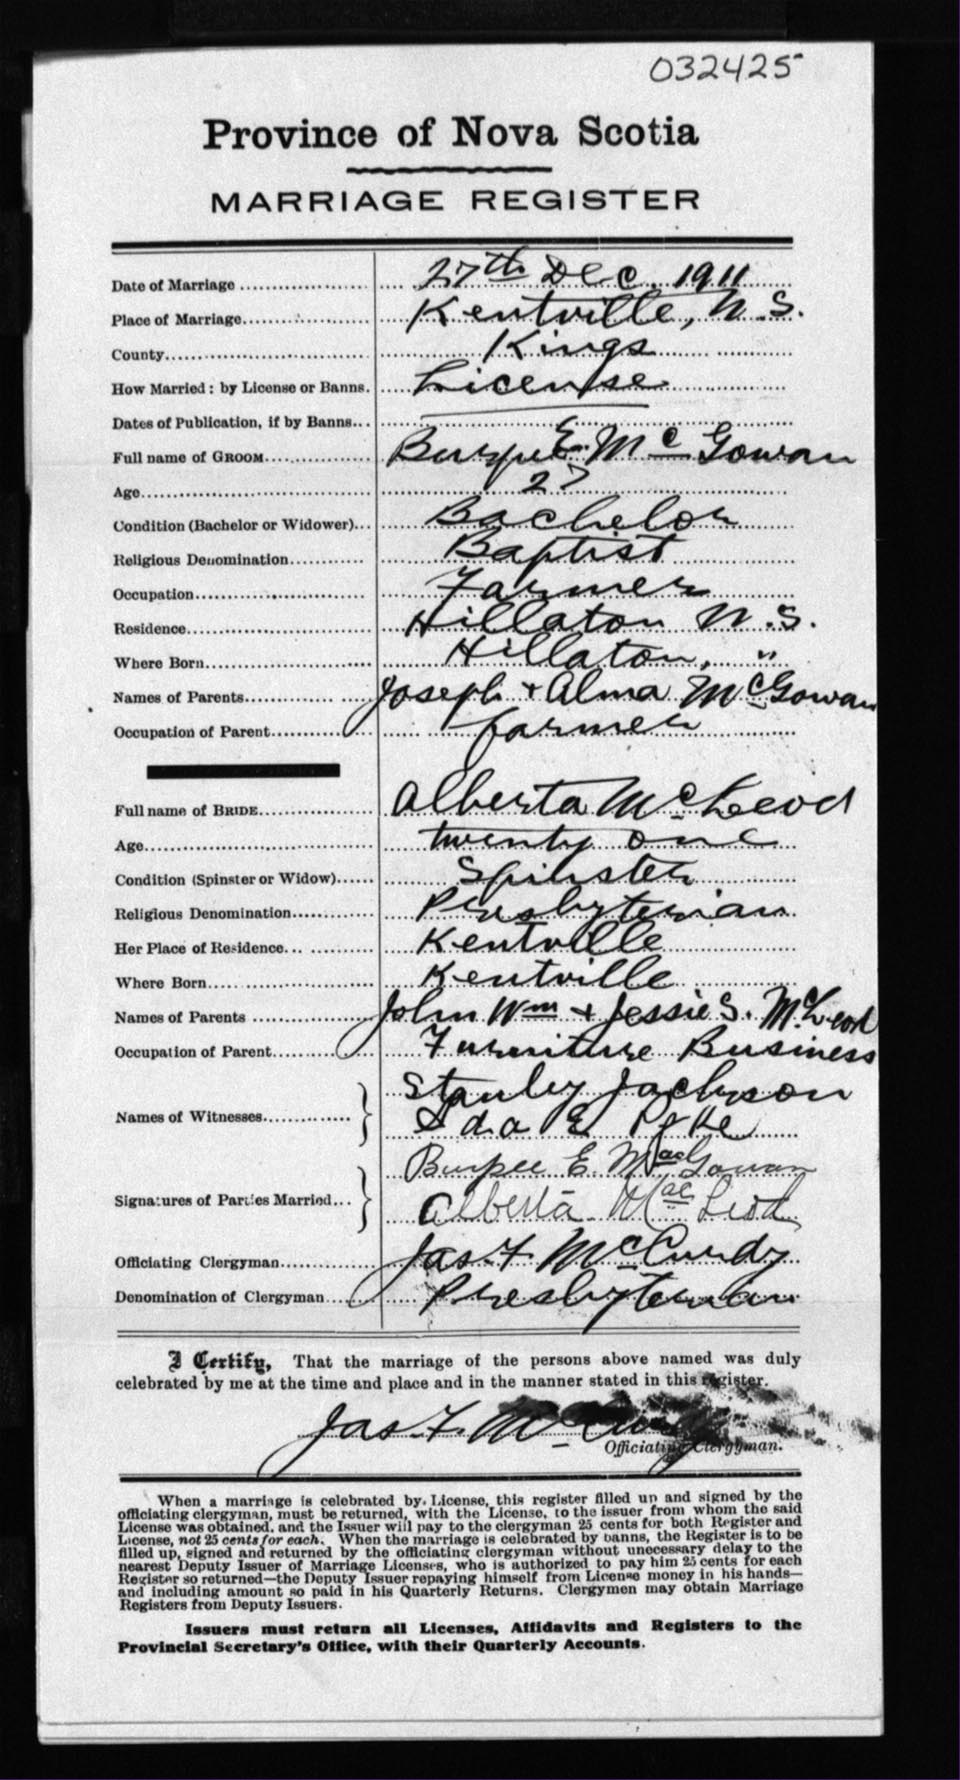 032425
Province of Nova Scotia
MARRIAGE REGISTER
Date of Marriage 27th Dec. 1911
Place of Marriage Kentville, N.S.
County Kings
How Married: by License or Banns. License
Dates of Publication, if by Banns
Full name of GROOM Burpee E. McGowan
Age 27
Condition (Bachelor or Widower) Bachelor
Religious Denomination Baptist
Occupation Farmer
Residence Hillaton N.S.
Where Born Hillaton, "
Names of Parents Joseph + Alma McGowan
Occupation of Parent farmer
Full name of BRIDE Alberta McLeod
Age twenty one
Condition (Spinster or Widow) Spinster
Religious Denomination Presbyterian
Her Place of Residence Kentville
Where Born Kentville
Names of Parents John Wm + Jessie S. McLeod
Occupation of Parent Furniture Business
Names of Witnesses Stanley Jackson
Ada E
Signatures of Parties Married Burpee E. MacGowan
Alberta MacLeod
Officiating Clergyman Jas. F. McCurdy
Denomination of Clergyman Presbyterian
I Certify, That the marriage of the persons above named was duly
celebrated by me at the time and place and in the manner stated in this register.
Jas. F. McCurdy
Officiating Clergyman.
When a marriage is celebrated by License, this register filled up and signed by the
officiating clergyman, must be returned, with the License, to the issuer from whom the said
License was obtained, and the Issuer will pay to the clergyman 25 cents for both Register and
License, not 25 cents for each. When the marriage is celebrated by banns, the Register is to be
filled up, signed and returned by the officiating clergyman without unnecessary delay to the
nearest Deputy Issuer of Marriage Licenses, who is authorized to pay him 25 cents for each
Register so returned—the Deputy Issuer repaying himself from License money in his hands—
and including amount so paid in his Quarterly Returns. Clergymen may obtain Marriage
Registers from Deputy Issuers.
Issuers must return all Licenses, Affidavits and Registers to the
Provincial Secretary's Office, with their Quarterly Accounts.